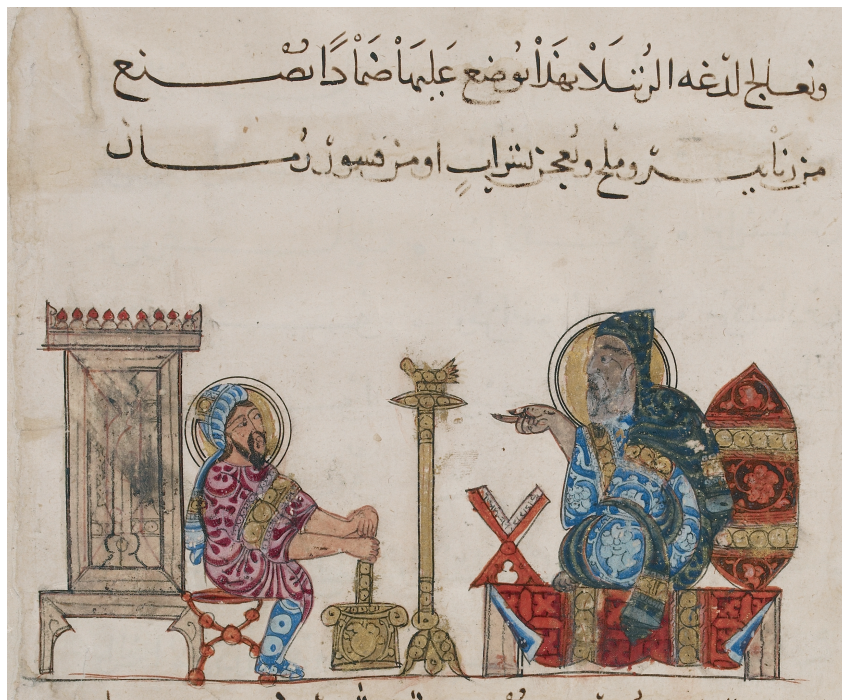 وتعالج لدغه الرتيلا بهذا يوضع عليها ضمادا يصنع
من رماد ... وملح ويعجن بشراب او من قشور رمان